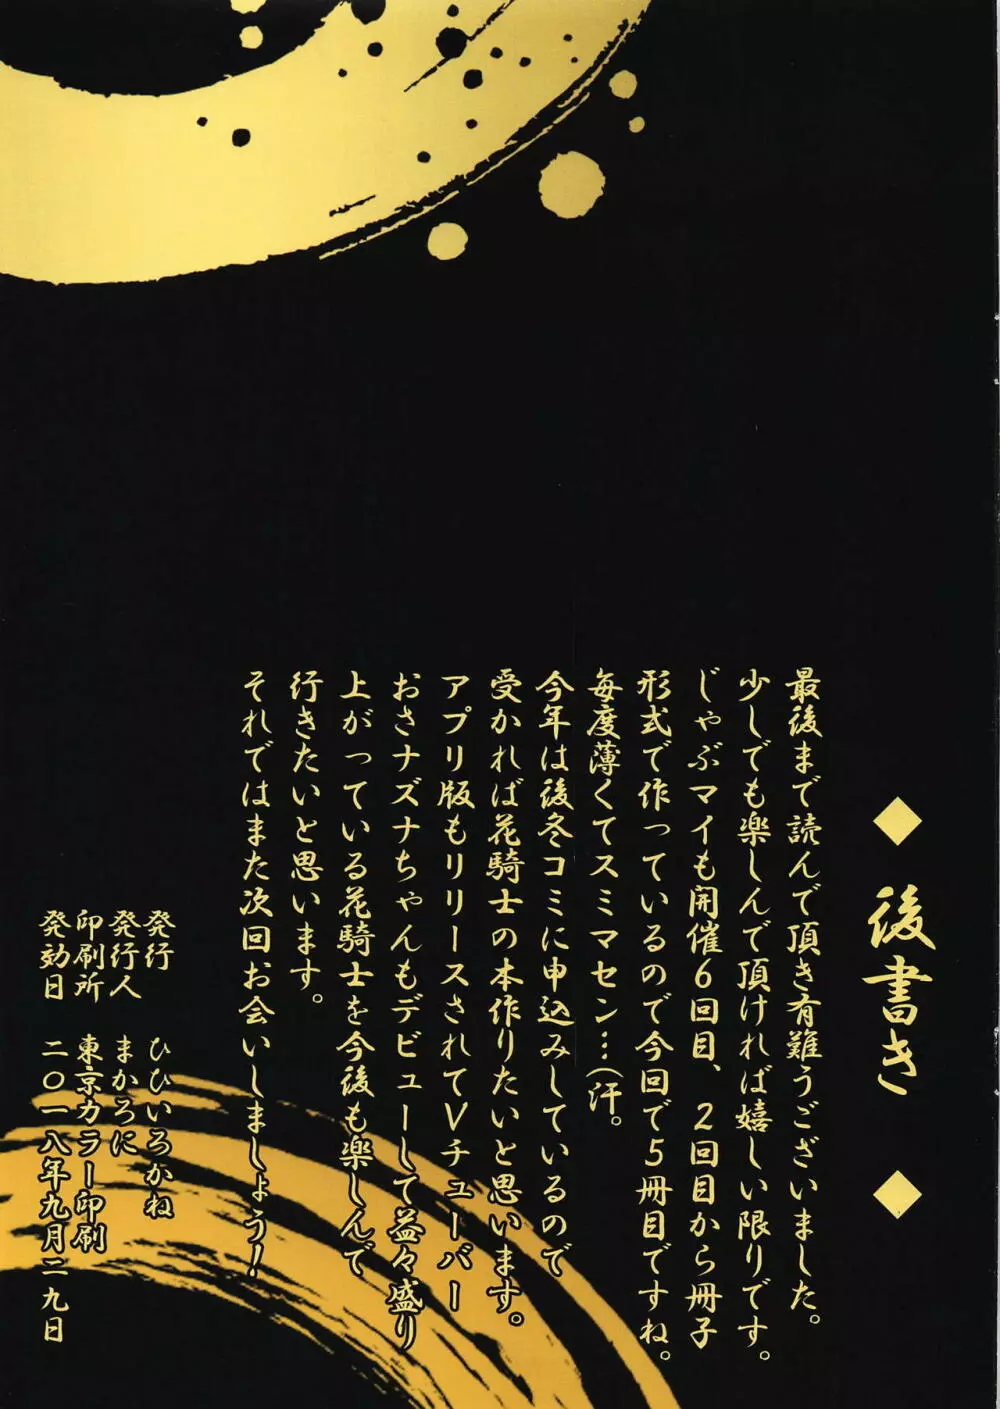 ◆ 後書き ◆
最後まで読んで頂き有難うございました。
少しでも楽しんで頂ければ嬉しい限りです。
じゃぶマイも開催6回目、2回目から冊子
形式で作っているので今回で5冊目ですね。
毎度薄くてスミマセン…(汗。
今年は後冬コミに申込みしているので
受かれば花騎士の本作りたいと思います。
アプリ版もリリースされてVチューバー
おさナズナちゃんもデビューして益々盛り
上がっている花騎士を今後も楽しんで
行きたいと思います。
それではまた次回お会いしましょう!
発行 ひひいろかね
発行人 まかろに
印刷所 東京カラー印刷
発効日 二〇一八年九月二九日